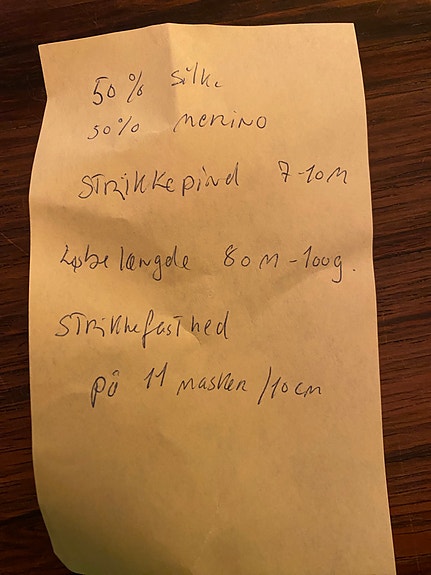 50% silke
50% merino
Strikkepind 7-10M
Løbelængde 80M-100g.
Strikkefasthed
på 11 masker/10cm